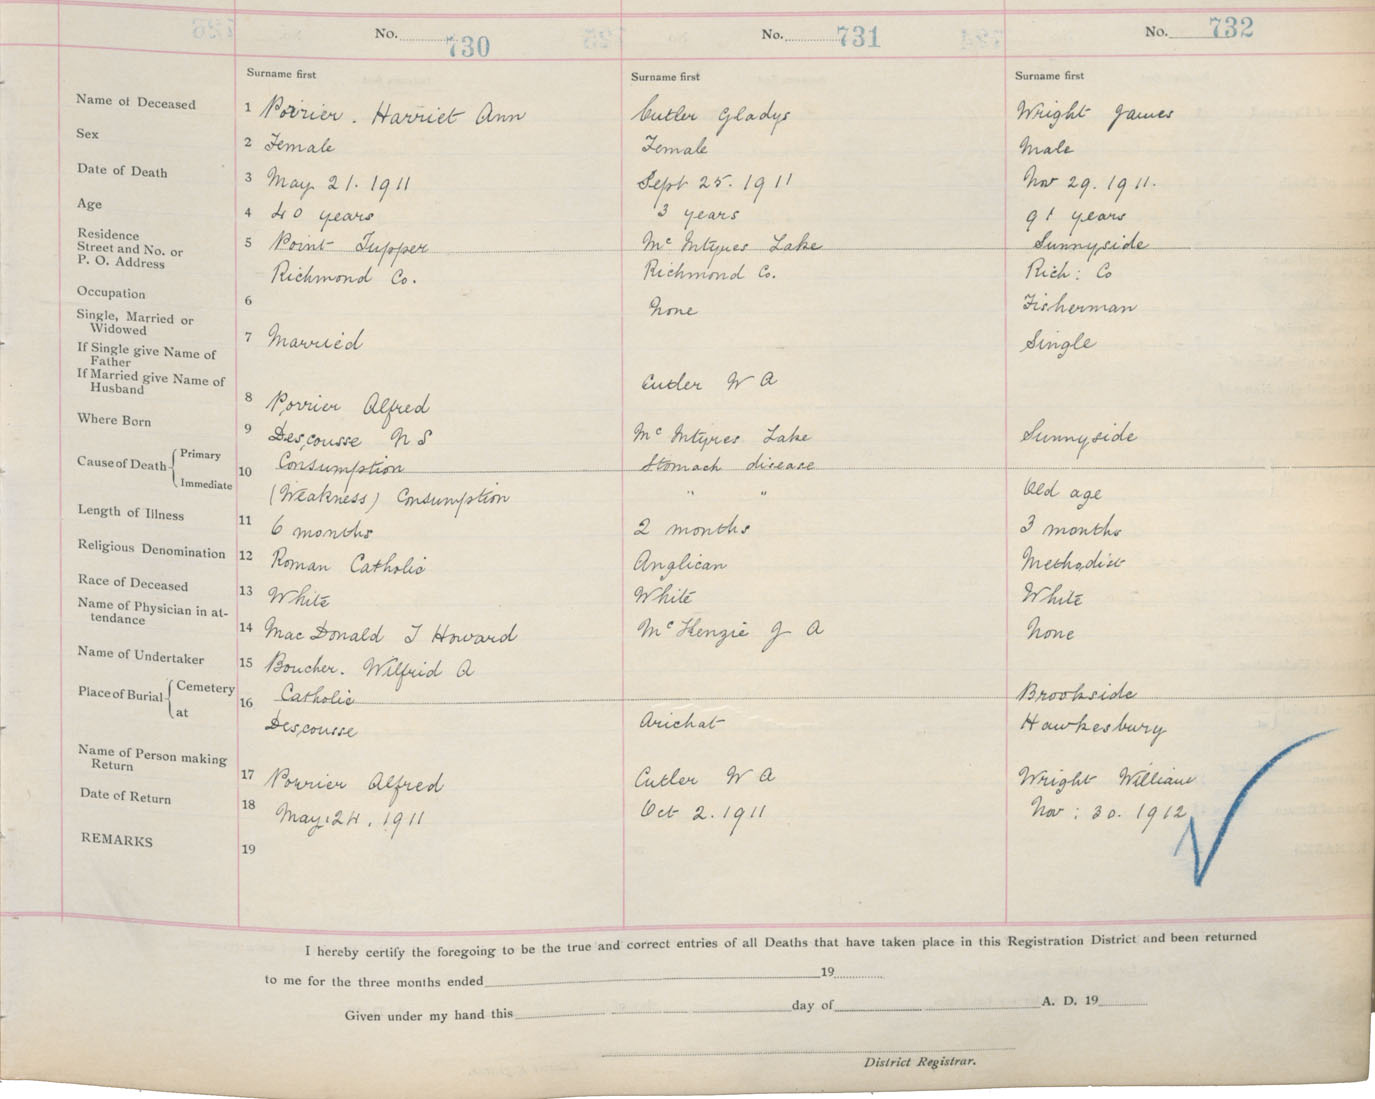 No. 730 No. 731 No. 732
Surname first Surname first Surname first
Name of Deceased 1 Poirier. Harriet Ann Cutler Gladys Wright James
Sex 2 Female Female Male
Date of Death 3 May 21. 1911 Sept 25. 1911 Nov 29. 1911.
Age 4 40 years 3 years 91 years
Residence
Street and No. or 5 Point Tupper Mc Intyres Lake Sunnyside
P. O. Address Richmond Co. Richmond Co. Rich: Co
Occupation 6 None Fisherman
Single, Married or
Widowed 7 Married Single
If Single give Name of
Father
If Married give Name of Cutler W A
Husband 8 Porrier Alfred
Where Born 9 Descousse N S Mc Intyres Lake Sunnyside
Cause of Death Primary 10 Consumption Stomach disease
Immediate (Weakness) Consumption " " Old age
Length of Illness 11 6 months 2 months 3 months
Religious Denomination 12 Roman Catholic Anglican Methodist
Race of Deceased 13 White White White
Name of Physician in at-
tendance 14 Mac Donald T Howard Mc Kenzie J A None
Name of Undertaker 15 Boucher. Wilfrid A
Place of Burial Cemetery 16 Catholic Brookside
at Descousse Arichat Hawkesbury
Name of Person making
Return 17 Porrier Alfred Cutler W A Wright William
Date of Return 18 May 24. 1911 Oct 2. 1911 Nov: 30. 1912
REMARKS 19
I hereby certify the foregoing to be the true and correct entries of all Deaths that have taken place in this Registration District and been returned
to me for the three months ended 19
Given under my hand this day of A. D. 19
District Registrar.